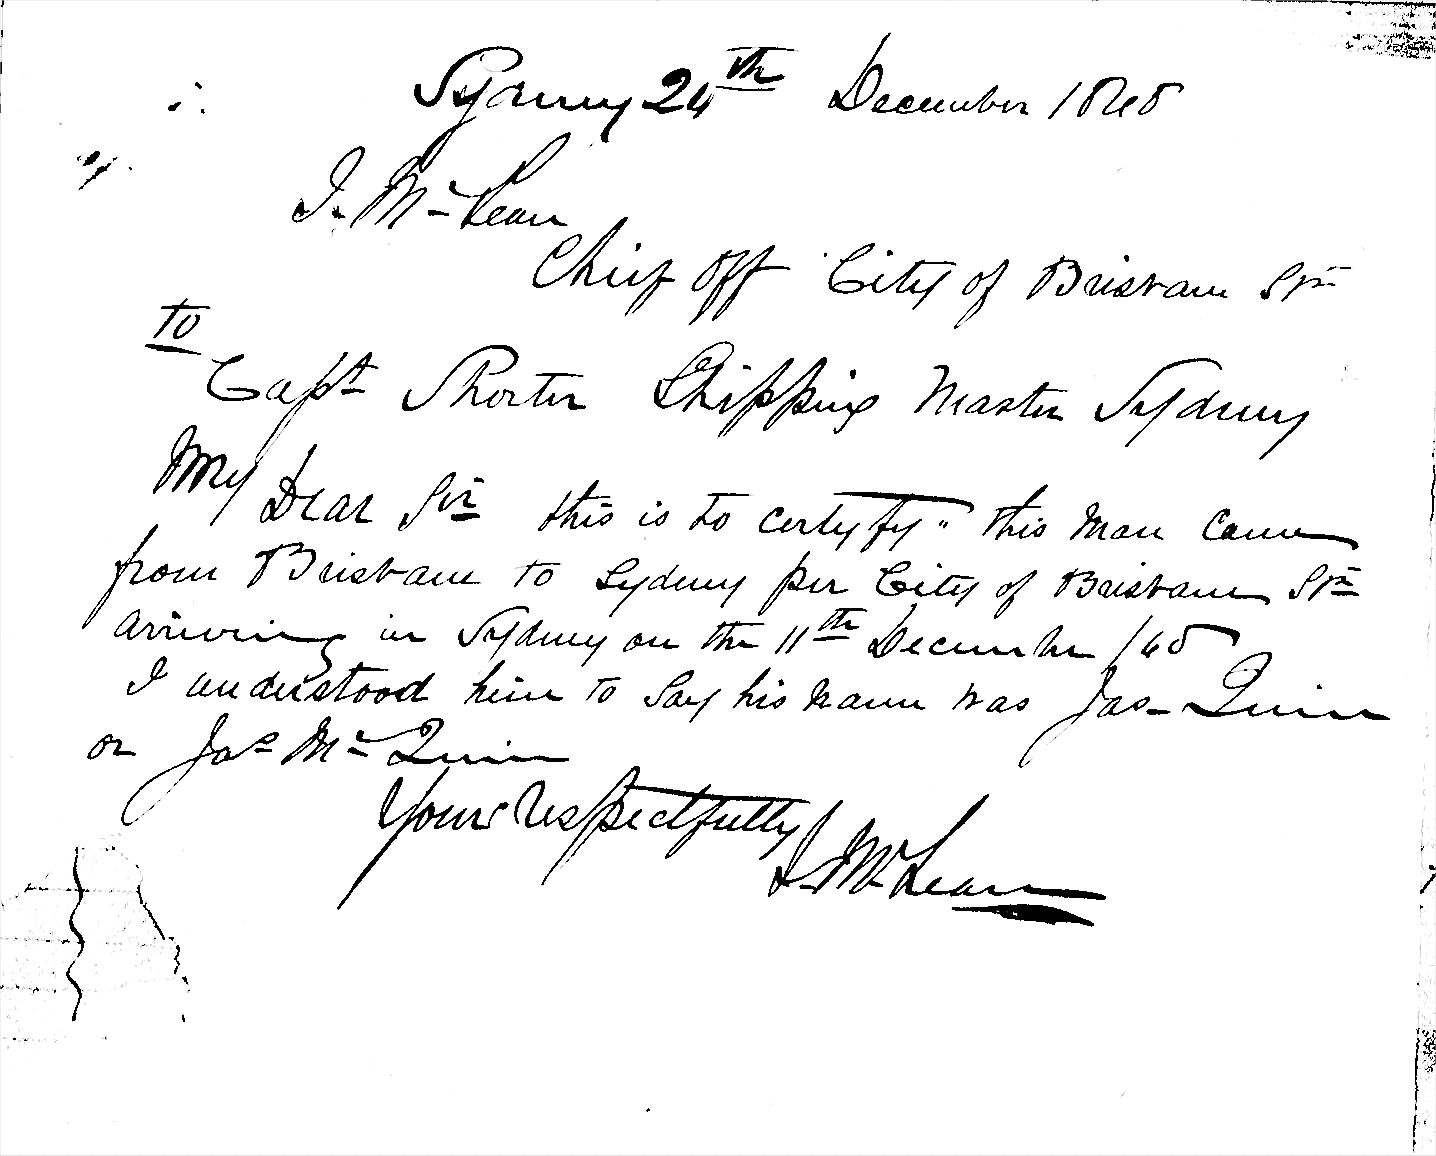 Sydney 24th December 1868
J. Mc Lean
Chief Off City of Brisbane Str
To
Capt Shorter Shipping Master Sydney
My Dear Sir this is to certyfy this man came
from Brisbane to Sydney per City of Brisbane Str
arriveing in Sydney on the 11th December /68
I understood him to say his name was Jas Quinn
or Jas Mc Quinn
Yours respectfully
J. Mc Lean